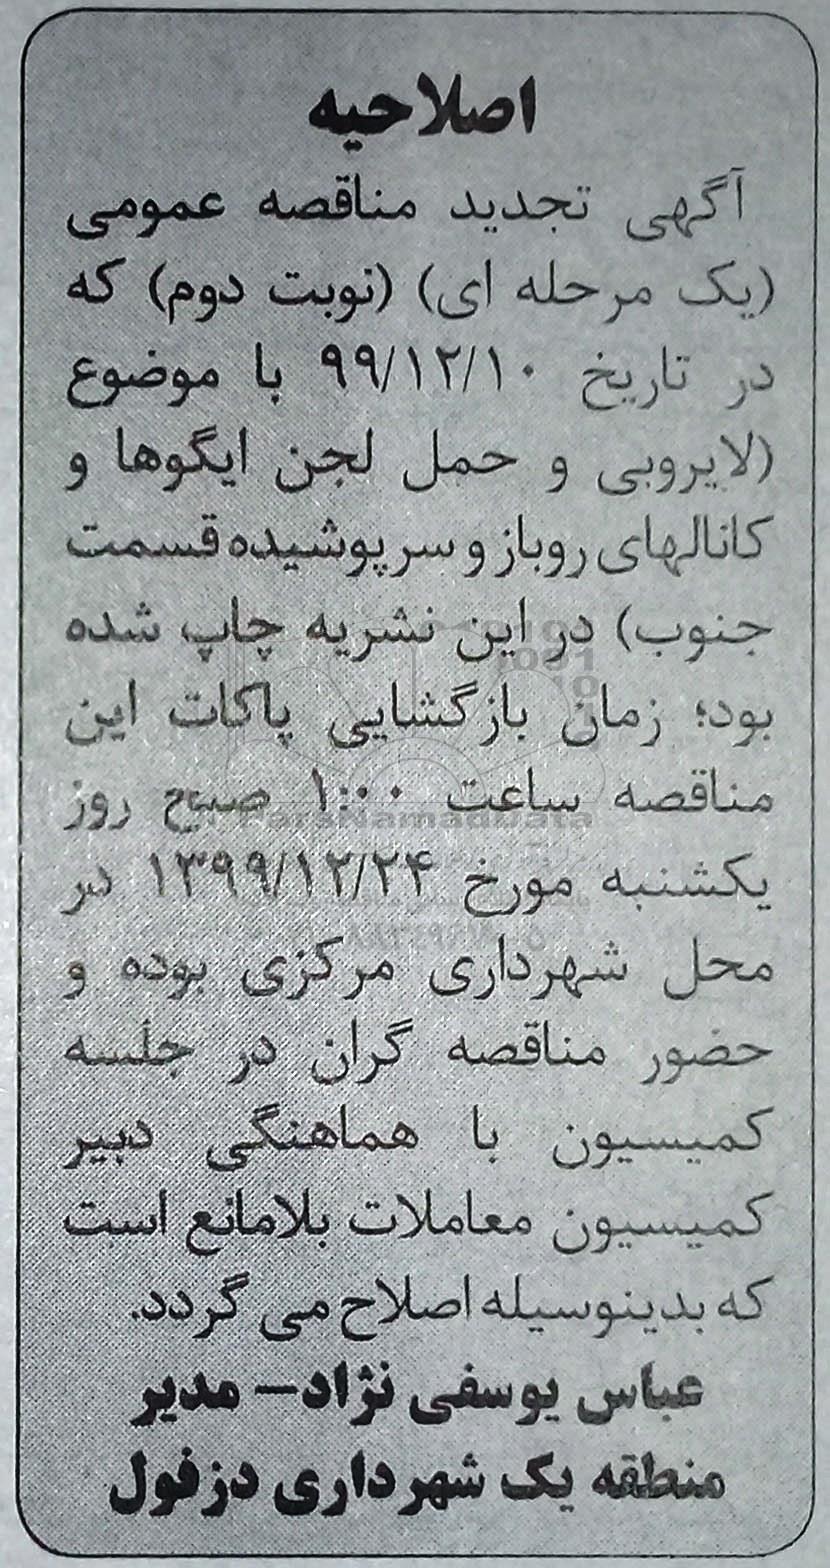 اصلاحیه
آگهی تجدید مناقصه عمومی
(یک مرحله ای) (نوبت دوم) که
در تاریخ ۹۹/۱۲/۱۰ با موضوع
(لایروبی و حمل لجن ایگوها و
کانالهای روباز و سرپوشیده قسمت
جنوب) در این نشریه چاپ شده
بود؛ زمان بازگشایی پاکات این
مناقصه ساعت ۱۰:۰۰ صبح روز
یکشنبه مورخ ۱۳۹۹/۱۲/۲۴ در
محل شهرداری مرکزی بوده و
حضور مناقصه گران در جلسه
کمیسیون با هماهنگی دبیر
کمیسیون معاملات بلامانع است
که بدینوسیله اصلاح می گردد.
عباس یوسفی نژاد– مدیر
منطقه یک شهرداری دزفول
ParsNamadData